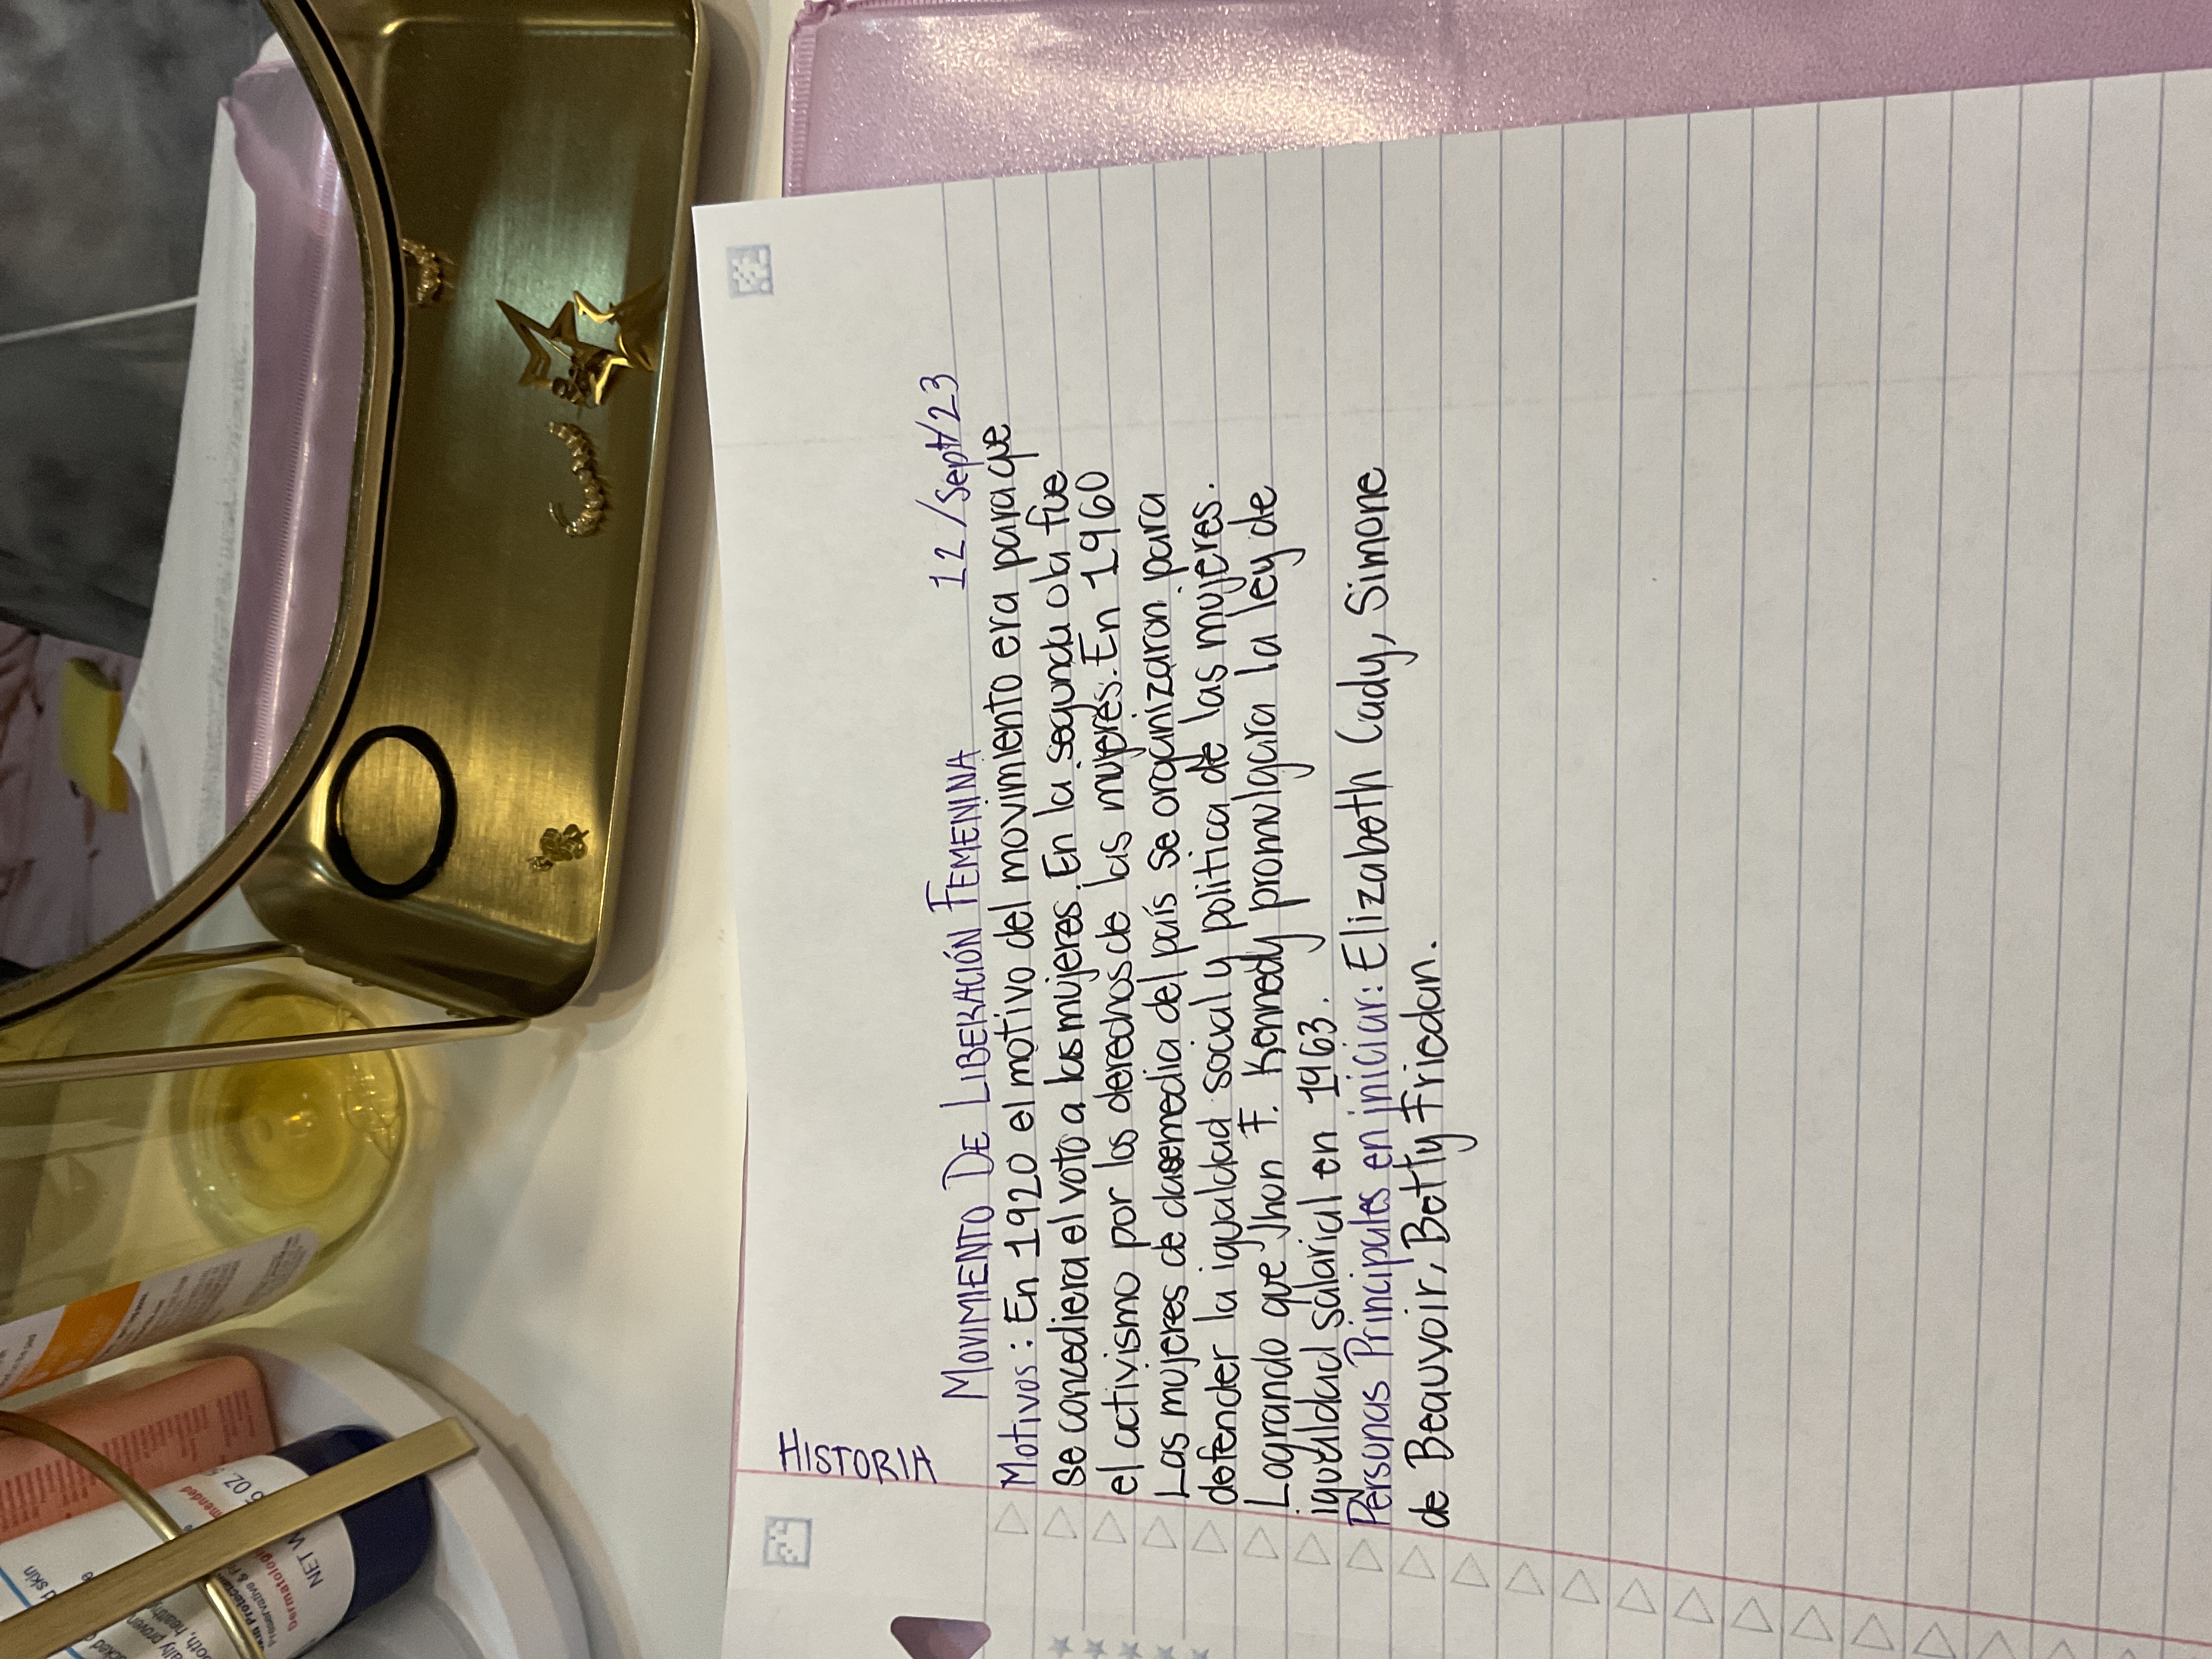 HISTORIA
MOVIMIENTO DE LIBERACIÓN FEMENINA 12/Sept/23
Motivos: En 1920 el motivo del movimiento era para que
se concediera el voto a las mujeres. En la segunda ola fue
el activismo por los derechos de las mujeres. En 1960
Las mujeres de clase media del país se organizaron para
defender la igualdad social y politica de las mujeres.
Logrando que Jhon F. Kennedy promulgara la ley de
igualdad salarial en 1963.
Personas Principales en iniciar: Elizabeth Cady, Simone
de Beauvoir, Betty Friedan.
NET W
OZ
Dermatolog
mended
d skin